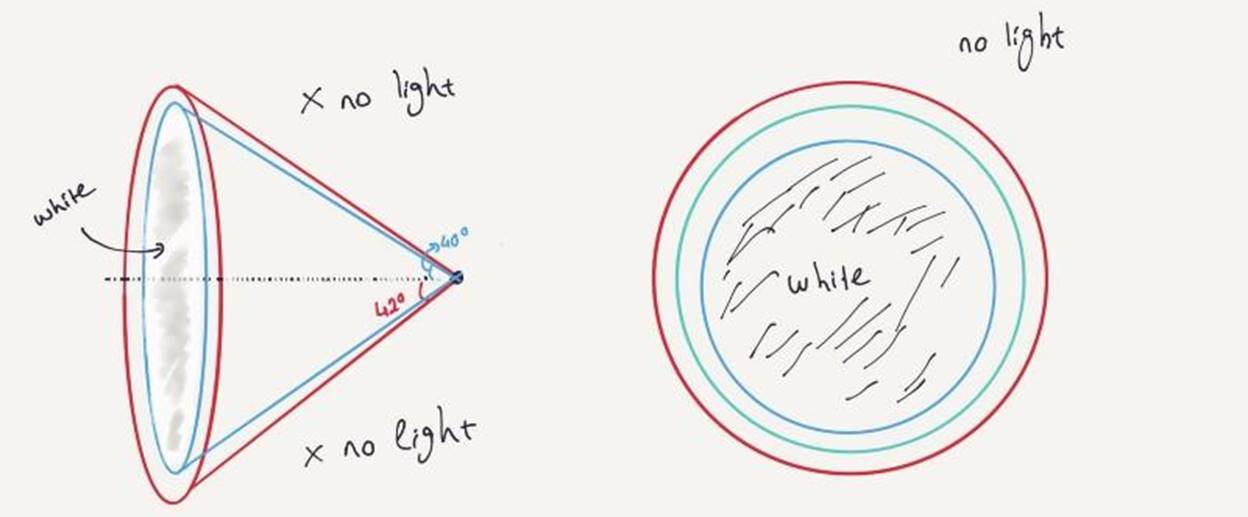 no light
x no light
white
40°
white
42°
x no light